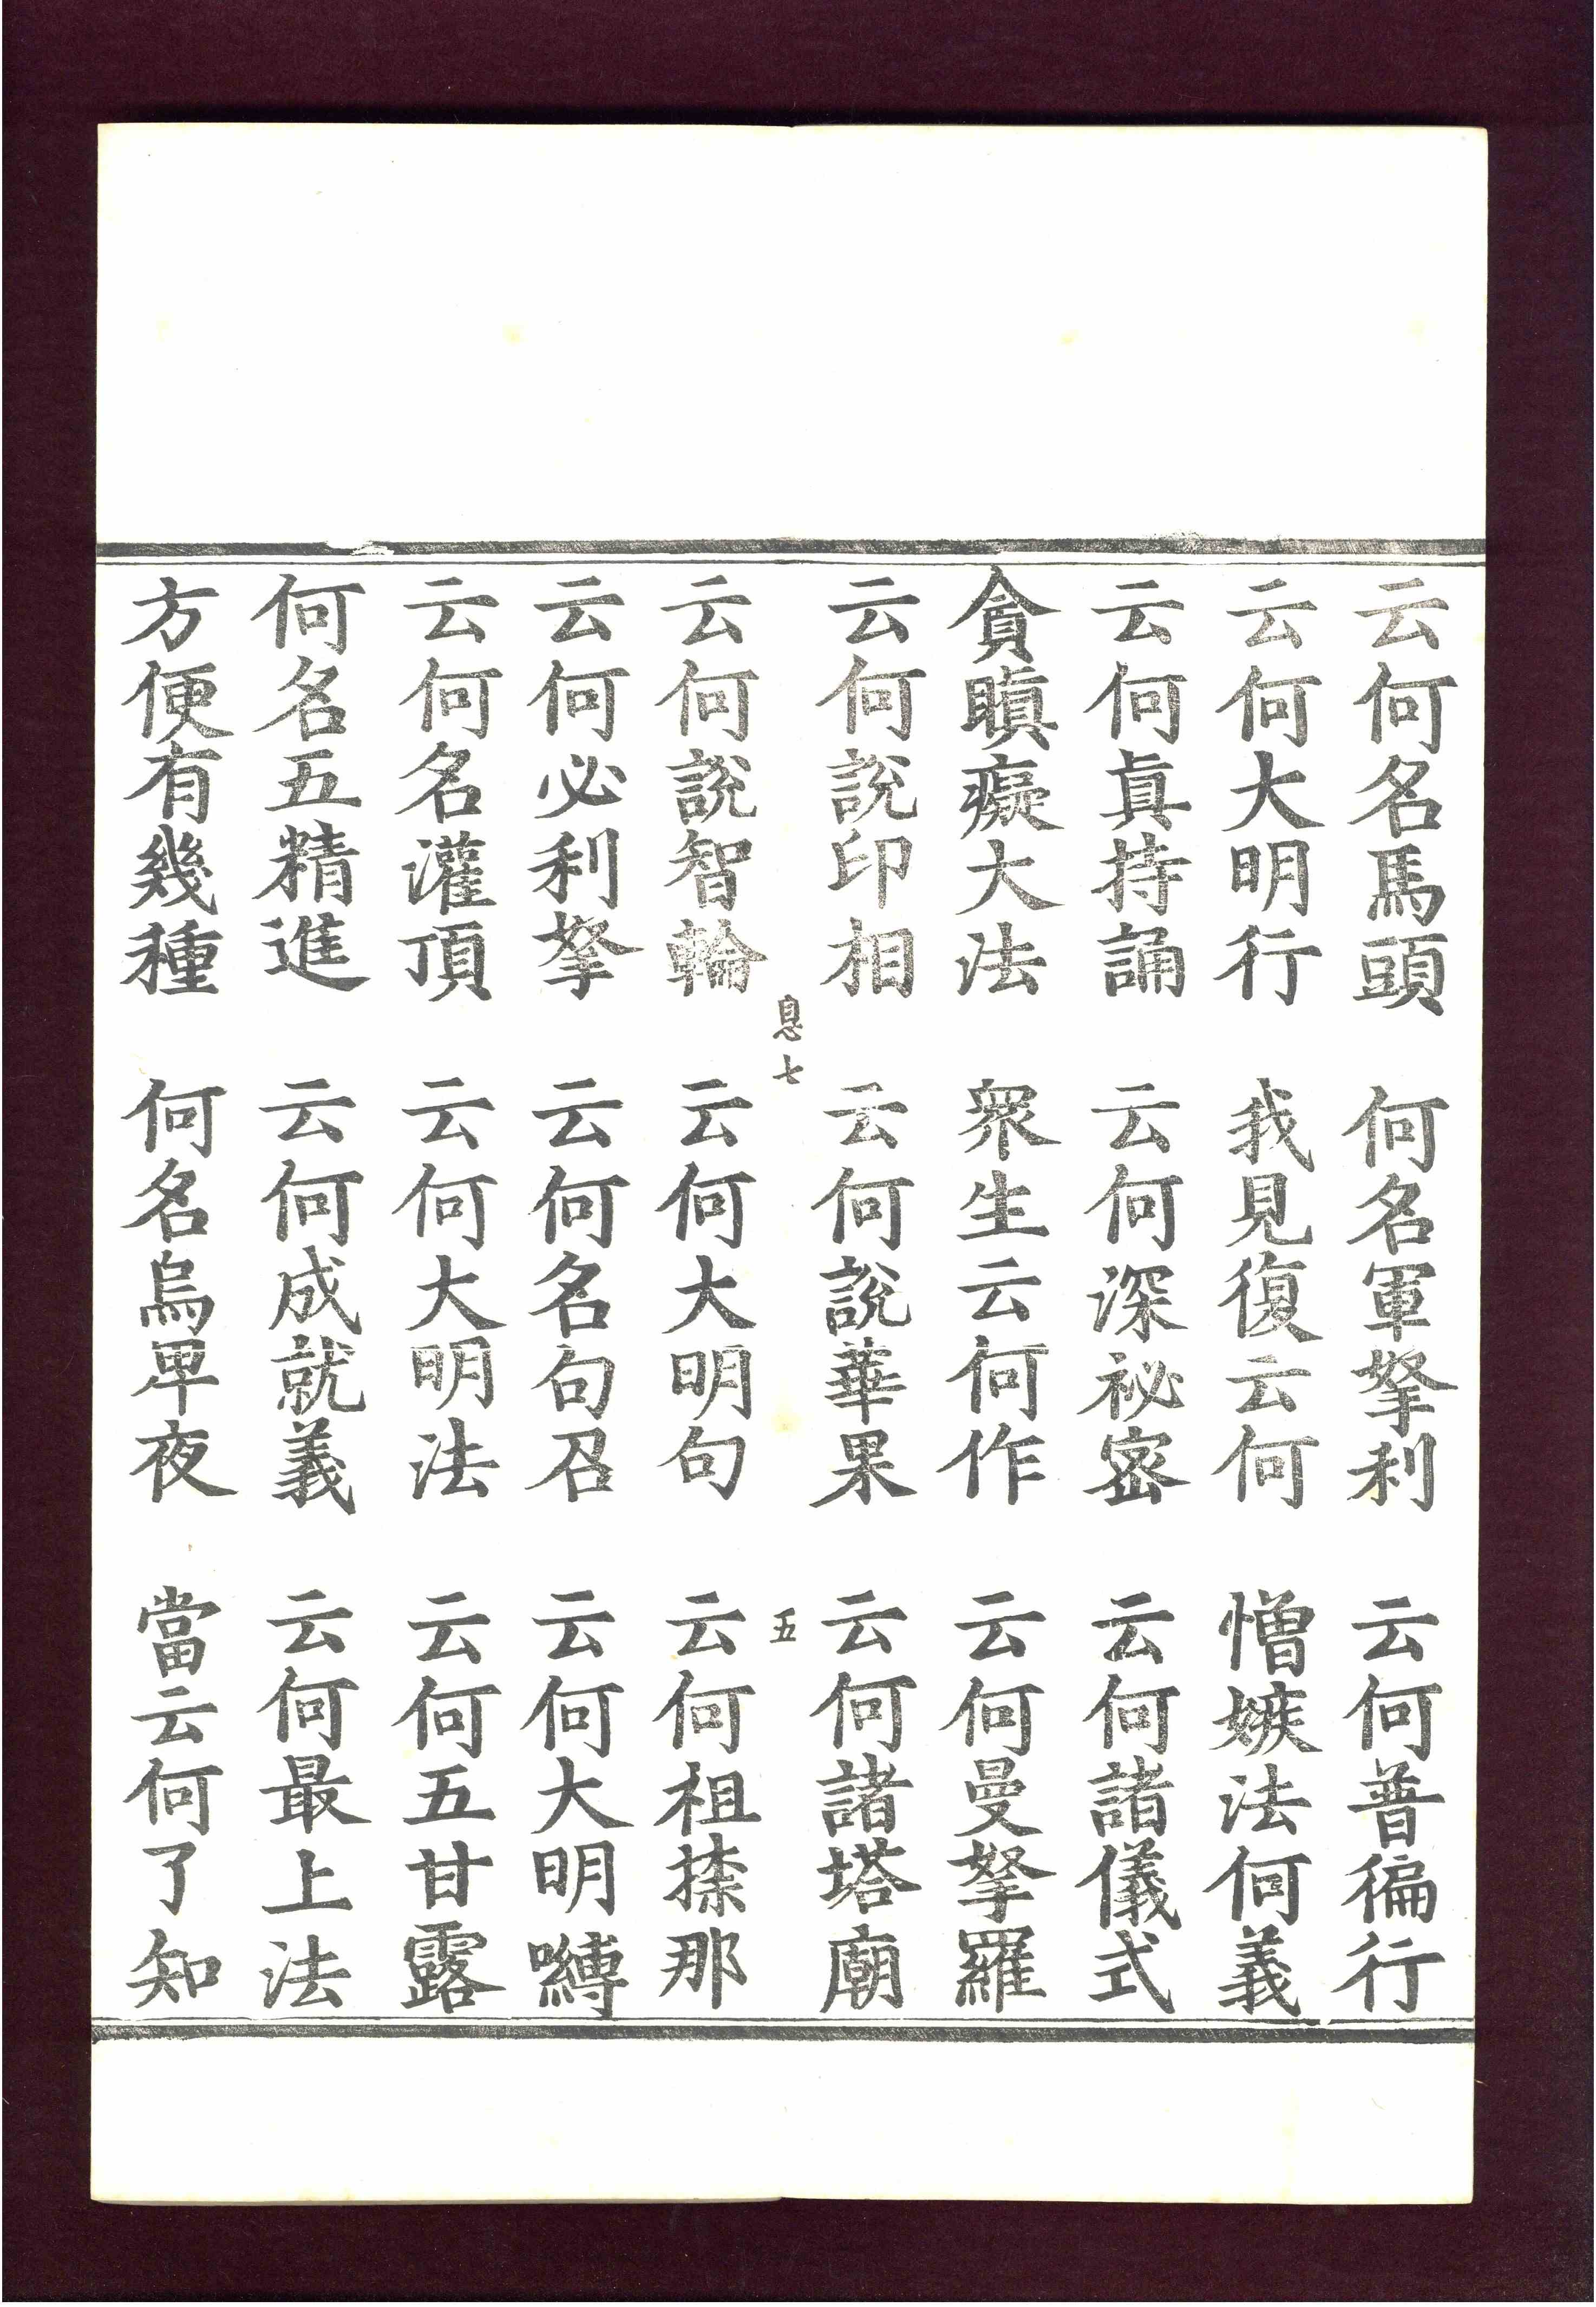 云何名馬頭　何名軍拏利　云何普徧行
云何大明行　我見復云何　憎嫉法何義
云何眞持誦　云何深祕密　云何諸儀式
貪瞋癡大法　衆生云何作　云何曼拏羅
云何說印相　云何說華果　云何諸塔廟
息七　五
云何說智輪　云何大明句　云何祖捺那
云何必利拏　云何名句召　云何大明嚩
云何名灌頂　云何大明法　云何五甘露
何名五精進　云何成就義　云何最上法
方便有幾種　何名烏卑夜　當云何了知